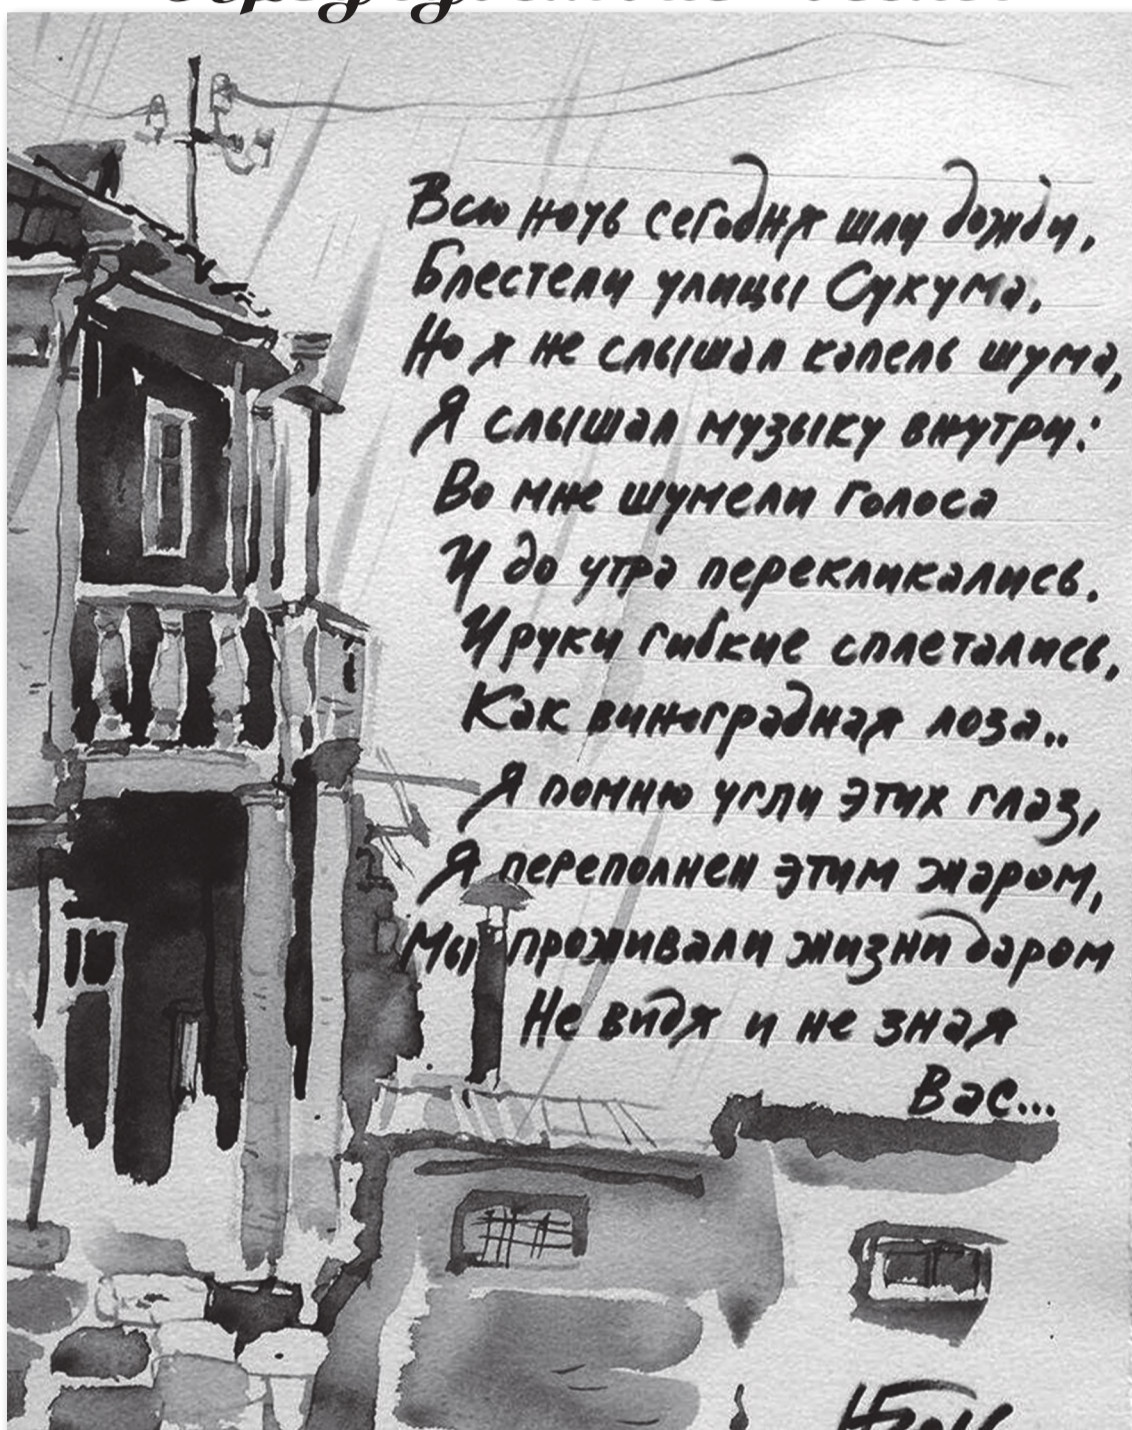 Всю ночь сегодня шли дожди,
Блестели улицы Сухума,
Но я не слышал капель шума,
Я слышал музыку внутри:
Во мне шумели голоса
И до утра перекликались.
И руки гибкие сплетались,
Как виноградная лоза..
Я помню угли этих глаз,
Я переполнен этим жаром,
Мы проживали жизни даром
Не видя и не зная
Вас...